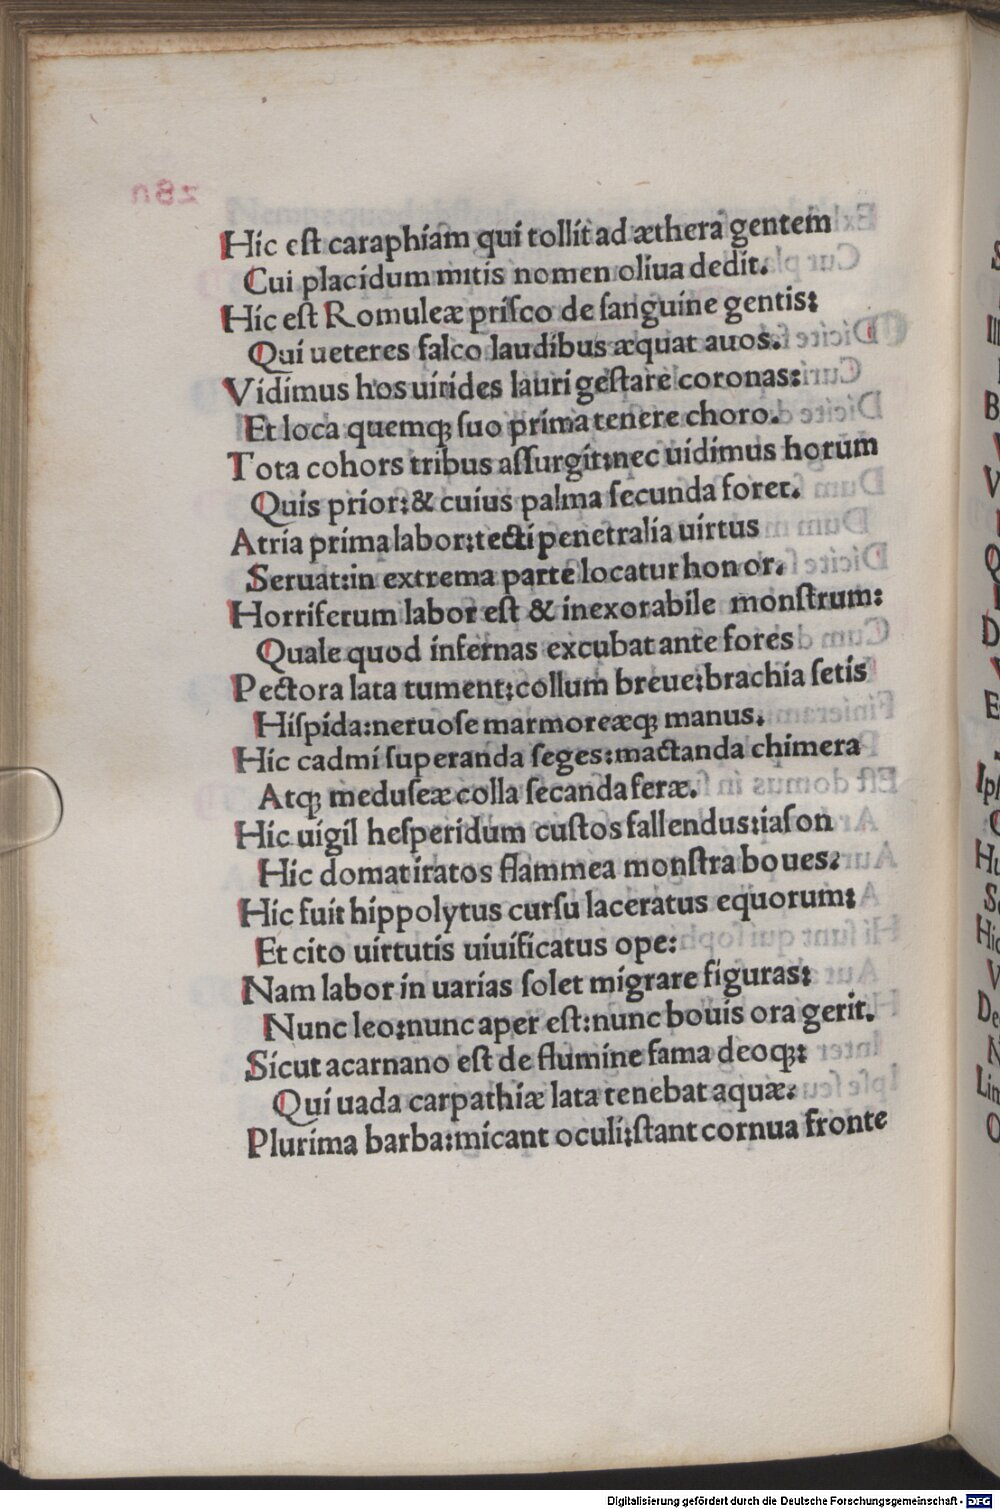 Hic eſt caraphiam qui tollit ad æthera gentem
Cui placidum mitis nomen oliua dedit.
Hic eſt Romuleæ priſco de ſanguine gentis:
Qui ueteres falco laudibus æquat auos.
Vidimus hos uirides lauri geſtare coronas:
Et loca quemqꝫ ſuo prima tenere choro.
Tota cohors tribus aſſurgit:nec uidimus horum
Quis prior:& cuius palma ſecunda foret.
Atria prima labor:tecti penetralia uirtus
Seruat:in extrema parte locatur honor.
Horriferum labor eſt & inexorabile monſtrum:
Quale quod infernas excubat ante fores
Pectora lata tument:collum breue:brachia ſetis
Hiſpida:neruoſe marmoreæqꝫ manus.
Hic cadmi ſuperanda ſeges:mactanda chimera
Atqꝫ meduſeæ colla ſecanda feræ.
Hic uigil heſperidum cuſtos fallendus:iaſon
Hic domat iratos flammea monſtra boues.
Hic fuit hippolytus curſu laceratus equorum:
Et cito uirtutis uiuificatus ope:
Nam labor in uarias ſolet migrare figuras:
Nunc leo:nunc aper eſt:nunc bouis ora gerit.
Sicut acarnano eſt de flumine fama deoqꝫ:
Qui uada carpathiæ lata tenebat aquæ.
Plurima barba:micant oculi:ſtant cornua fronte
Digitalisierung gefördert durch die Deutsche Forschungsgemeinschaft - DFG